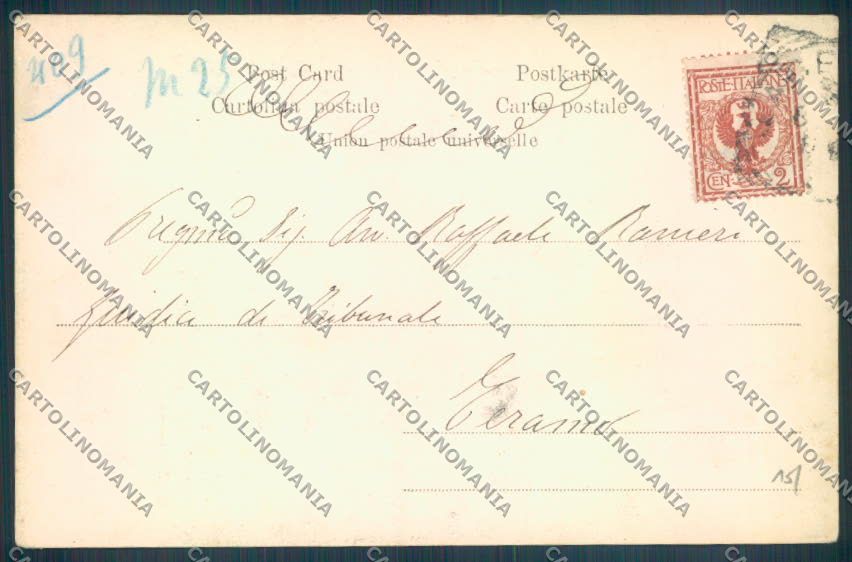 429
m 25
Post Card Postkarte
Cartolina postale Carte postale
Union postale universelle
POSTE ITALIANE
CEN. 2
Pregmo Sig. Avv. Raffaele Ranieri
Giudice di Tribunale
Teramo
CARTOLINOMANIA